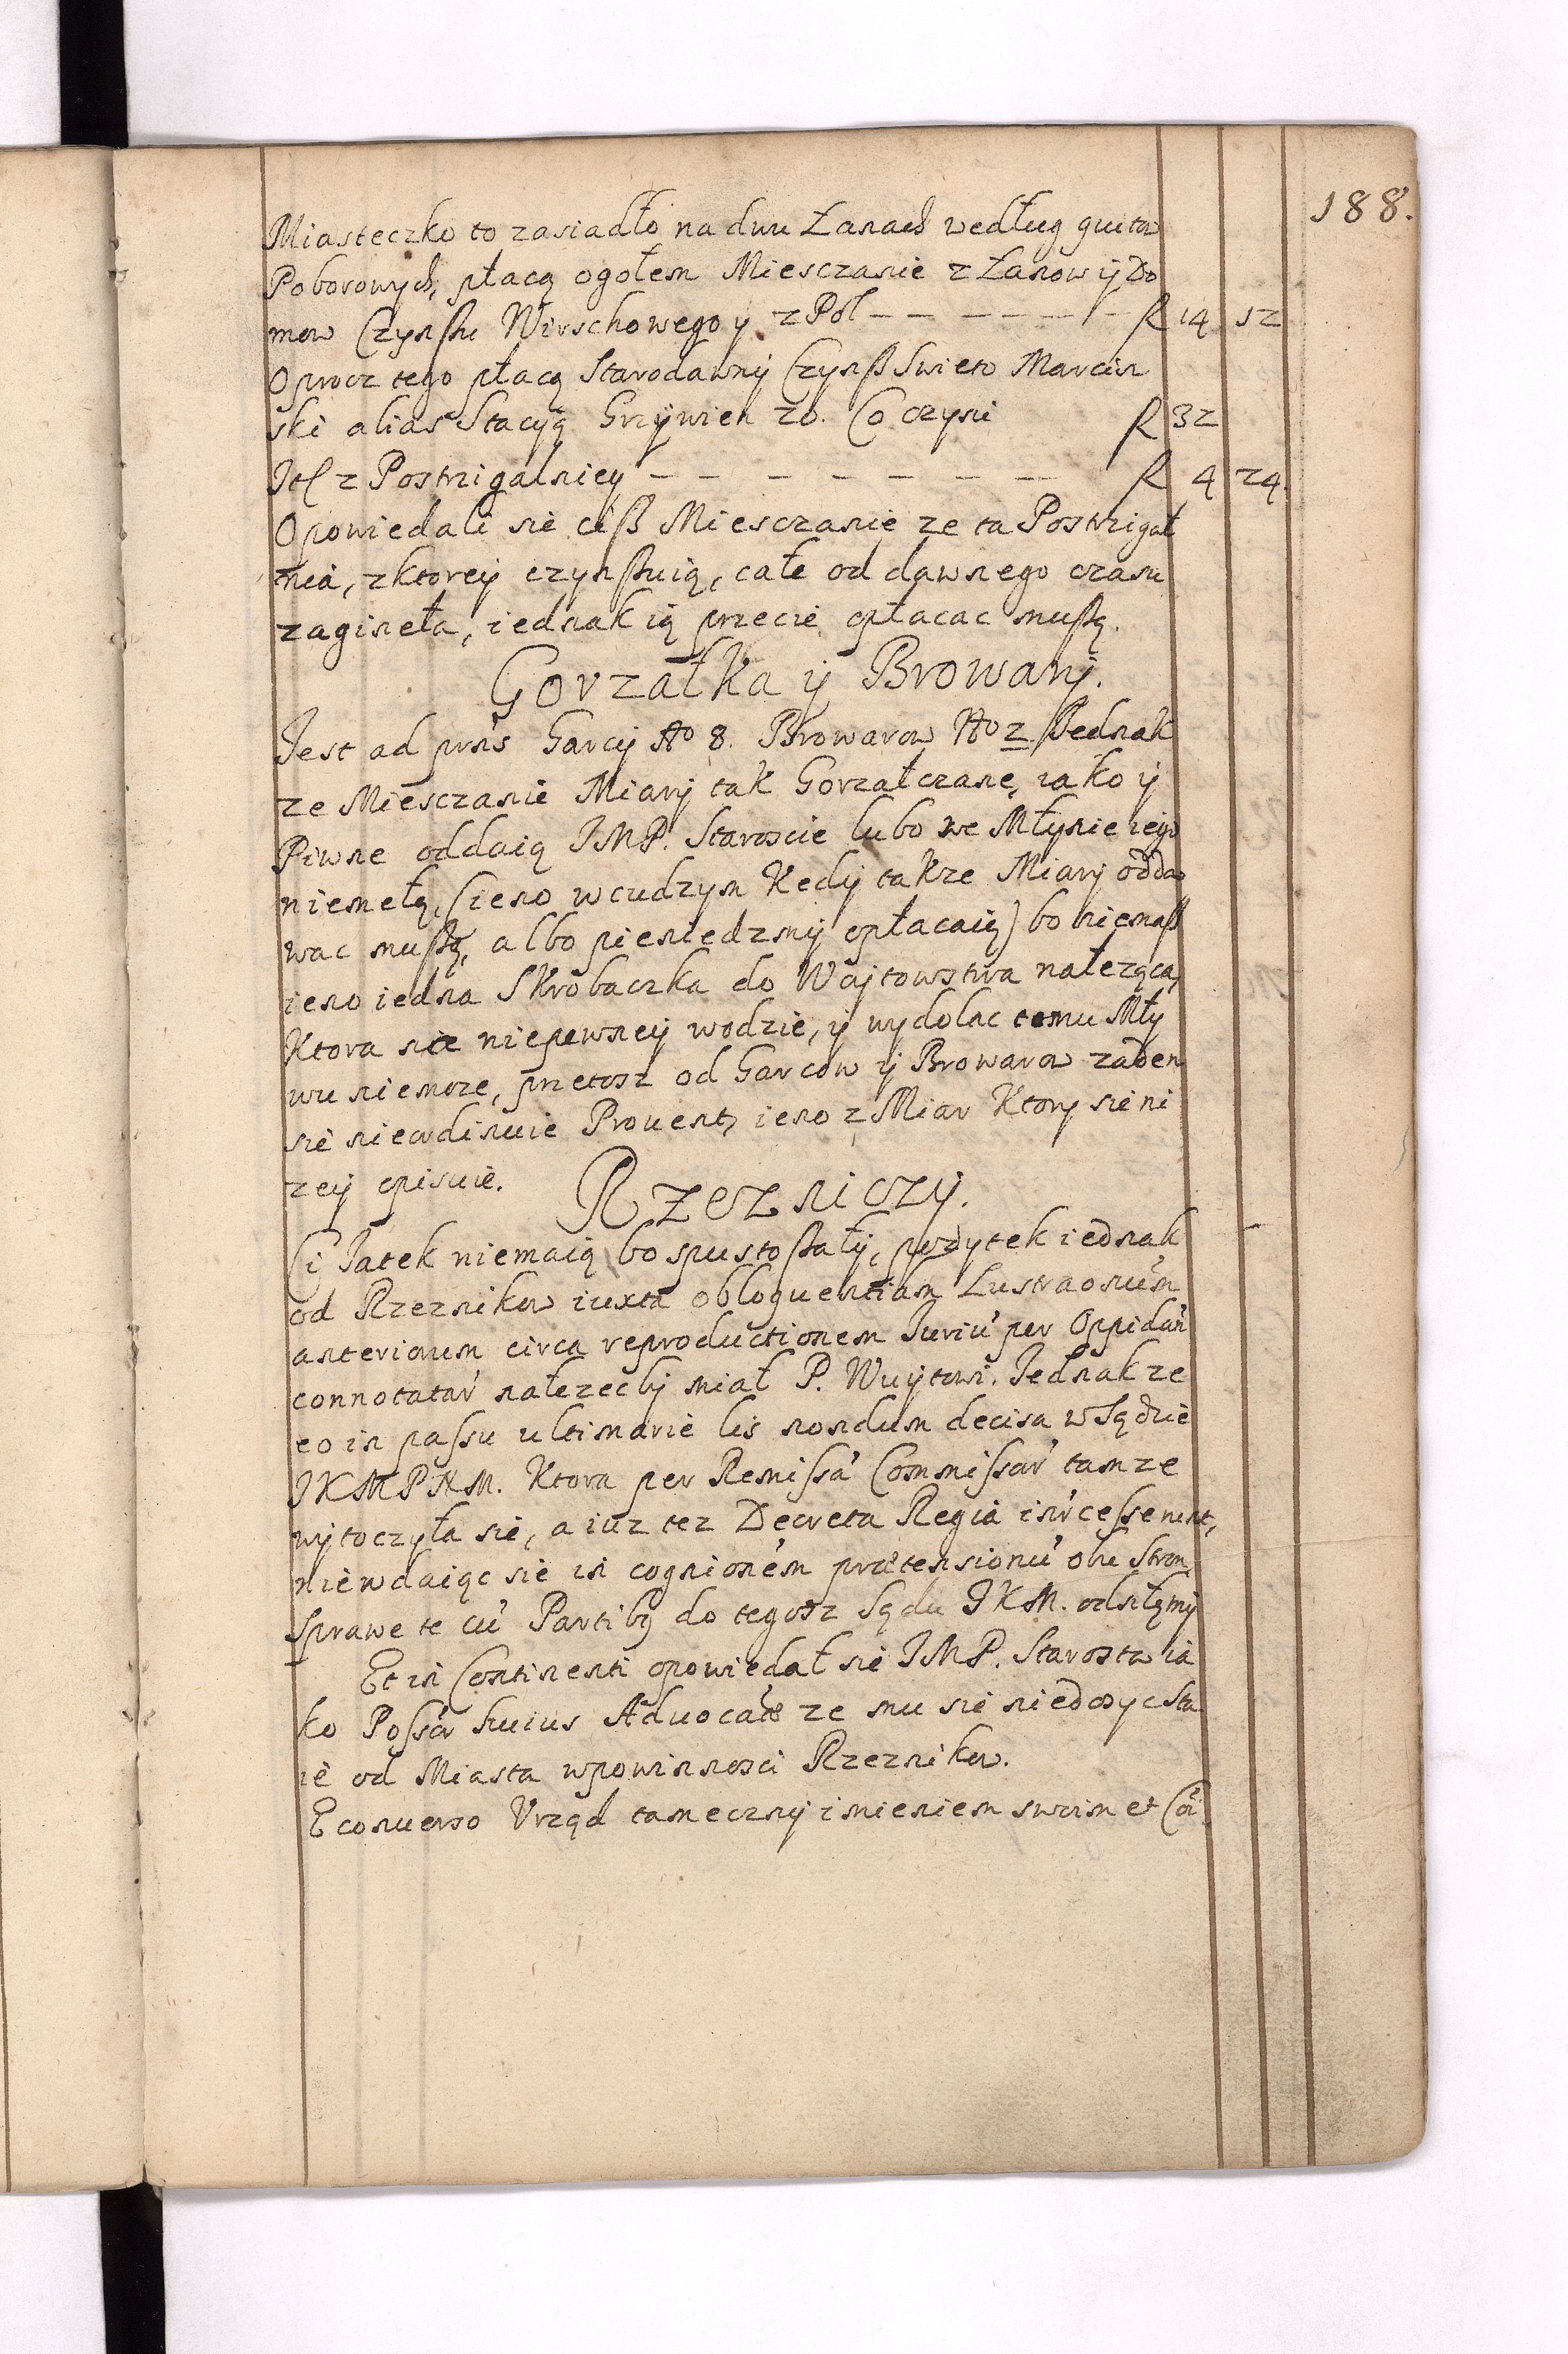 188.
Miasteczko to zasiadło na dwu Łanach według quitow
Poborowych, płacą ogołem Miesczanie z Łanow ÿ Do
mow Czynßu Wirschowego y z Pol — — — — — — f 14 12
Oprocz tego płacą Starodawnÿ Czynß Swieto Marcin
ski alias Stacÿą Grzÿwien 20. Co czyni f 32
It z Postrzigalnieÿ — — — — — — — f 4 24.
Opowiedali sie ciß Miesczanie ze ta Postrzigal
nia, z ktoreÿ czynßuią, całe od dawnego czasu
zagineła, iednak ią przecie opłacac mußą.
Gorzałka ÿ Browarÿ.
Jest ad prns Garcÿ No 8. Browarow No 2 Jednak
ze Miesczanie Miarÿ tak Gorzałczane, iako ÿ
Piwne oddaią JMP. Staroscie lubo we Młynie iego
niemełą, (ieno w cudzym Kedÿ takze Miarÿ odda
wac mußą, albo pieniedzmÿ opłacaią) bo niemaß
ieno iedna Skrobaczka do Woÿtowstwa nałezącą,
Ktora na niepewneÿ wodzie, ÿ wydolac temu Mły
wu niemoze, przetosz od Garcow ÿ Browarow zaden
sie nieordinuie Prouent, ieno z Miar Ktorÿ sie ni
zeÿ opisuie.
Rzezniczÿ.
Ci Jatek niemaią bo spustoßałÿ, pozytek iednak
od Rzeznikow iuxta obloquentiam Lustraonum
anteriorum circa reproductionem Juriu per Oppidan
connotatar nałezecbÿ miał P. Wuÿtowi. Jednak ze
eo in passu ultimarie lis nondum decisa w Sądzie
JKMPNM. Ktora per Remissa Commissar tamze
wÿtoczyła sie, a iuz tez Decreta Regia incessenent,
niewdaiąc sie in cognionem prætensionu obu Stron
Sprawe te cu Partibq do tegosz Sądu JKM. odsłamÿ
Et in Continenti opowiedał sie JMP. Starosta ia
ko Possor huius Aduocatae ze mu sie niedosyc sta
ie od Miasta w powinnosci Rzeznikow.
Econuerso Vrząd tamecznÿ imieniem swoim et Coi